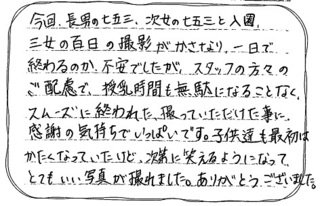 今回、長男の七五三、次女の七五三と入園、
三女の百日の撮影がかさなり、一日で
終わるのか、不安でしたが、スタッフの方々の
ご配慮で、授乳時間も無駄になることなく、
スムーズに終われた、撮っていただけた事に、
感謝の気持ちでいっぱいです。子供達も最初は
かたくなっていたけど、次第に笑えるようになって、
とてもいい写真が撮れました。ありがとうございました。